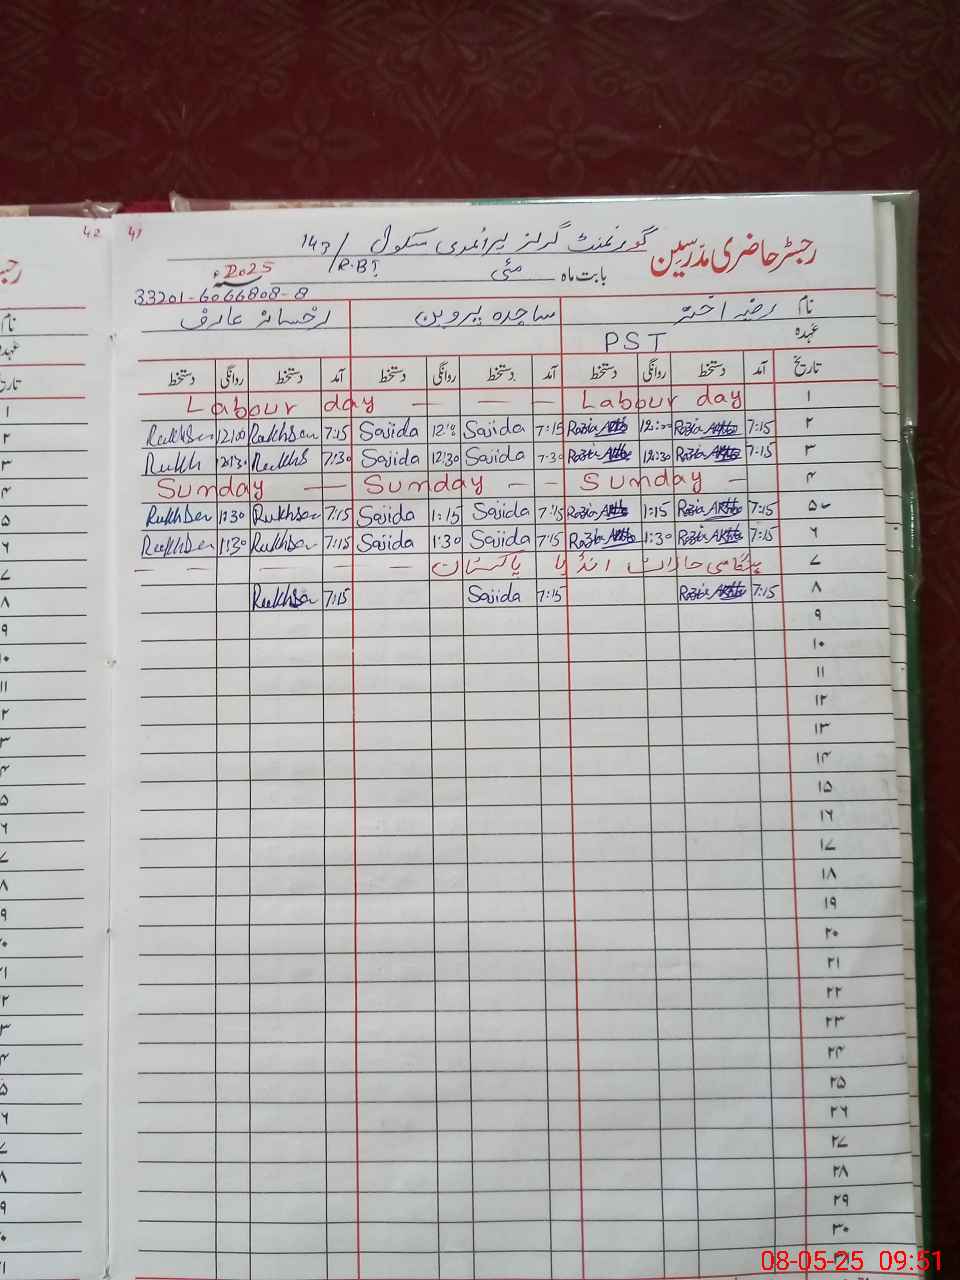 42
41
رجسٹر حاضری مدرسین گورنمنٹ گرلز پرائمری سکول 143/R.B I
بابت ماہ مئی 2025ء
33201-6066808-8
نام رضیہ اختر ساجدہ پروین رخسانہ عارف
عہدہ PST
تاریخ آمد دستخط روانگی دستخط آمد دستخط روانگی دستخط آمد دستخط روانگی دستخط
۱ Labour day — — — Labour day
۲ 7:15 Razia 12:00 Razia 7:15 Sajida 12:00 Sajida 7:15 Rukhsan 12:00 Rukhsan
۳ 7:15 Razia 12:30 Razia 7:30 Sajida 12:30 Sajida 7:30 Rukhs 12:30 Rukh
۴ Sunday — Sunday — — Sunday —
۵ 7:15 Razia 1:15 Razia 7:15 Sajida 1:15 Sajida 7:15 Rukhsan 1:30 Rukhsan
۶ 7:15 Razia 1:30 Razia 7:15 Sajida 1:30 Sajida 7:15 Rukhsan 1:30 Rukhsan
۷ ہنگامی حالات انڈیا پاکستان — — — — —
۸ 7:15 Razia 7:15 Sajida 7:15 Rukhsan
۹
۱۰
۱۱
۱۲
۱۳
۱۴
۱۵
۱۶
۱۷
۱۸
۱۹
۲۰
۲۱
۲۲
۲۳
۲۴
۲۵
۲۶
۲۷
۲۸
۲۹
۳۰
08-05-25 09:51